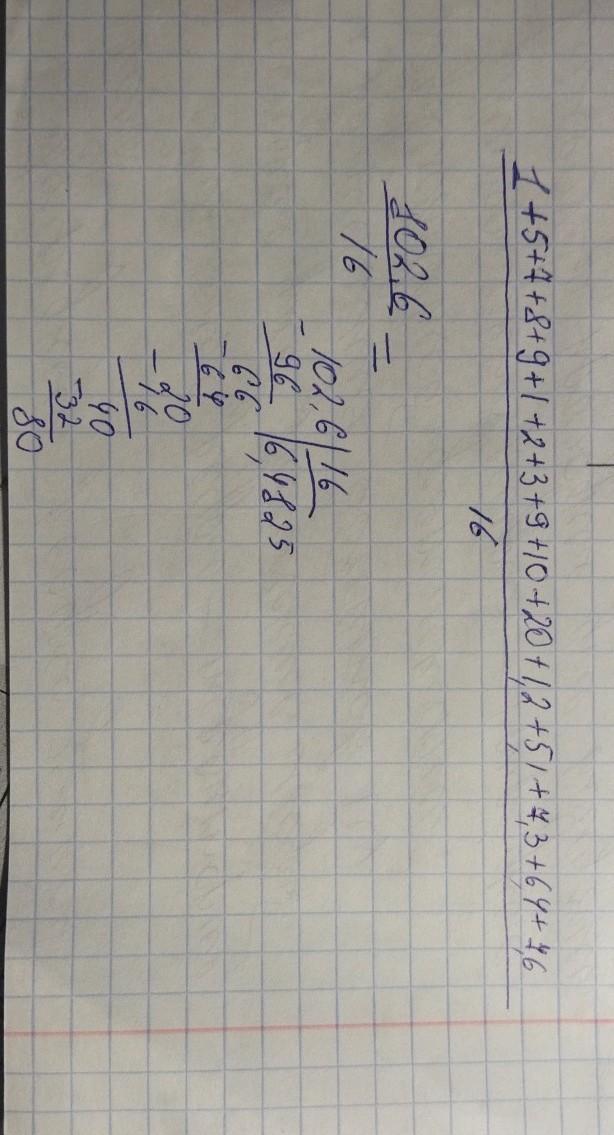 1+5+7+8+9+1+2+3+9+10+20+1,2+5,1+7,3+6,4+7,6
16
102,6
16
=
-102,6|16
96
6,4825
66
-64
-20
16
40
-32
80